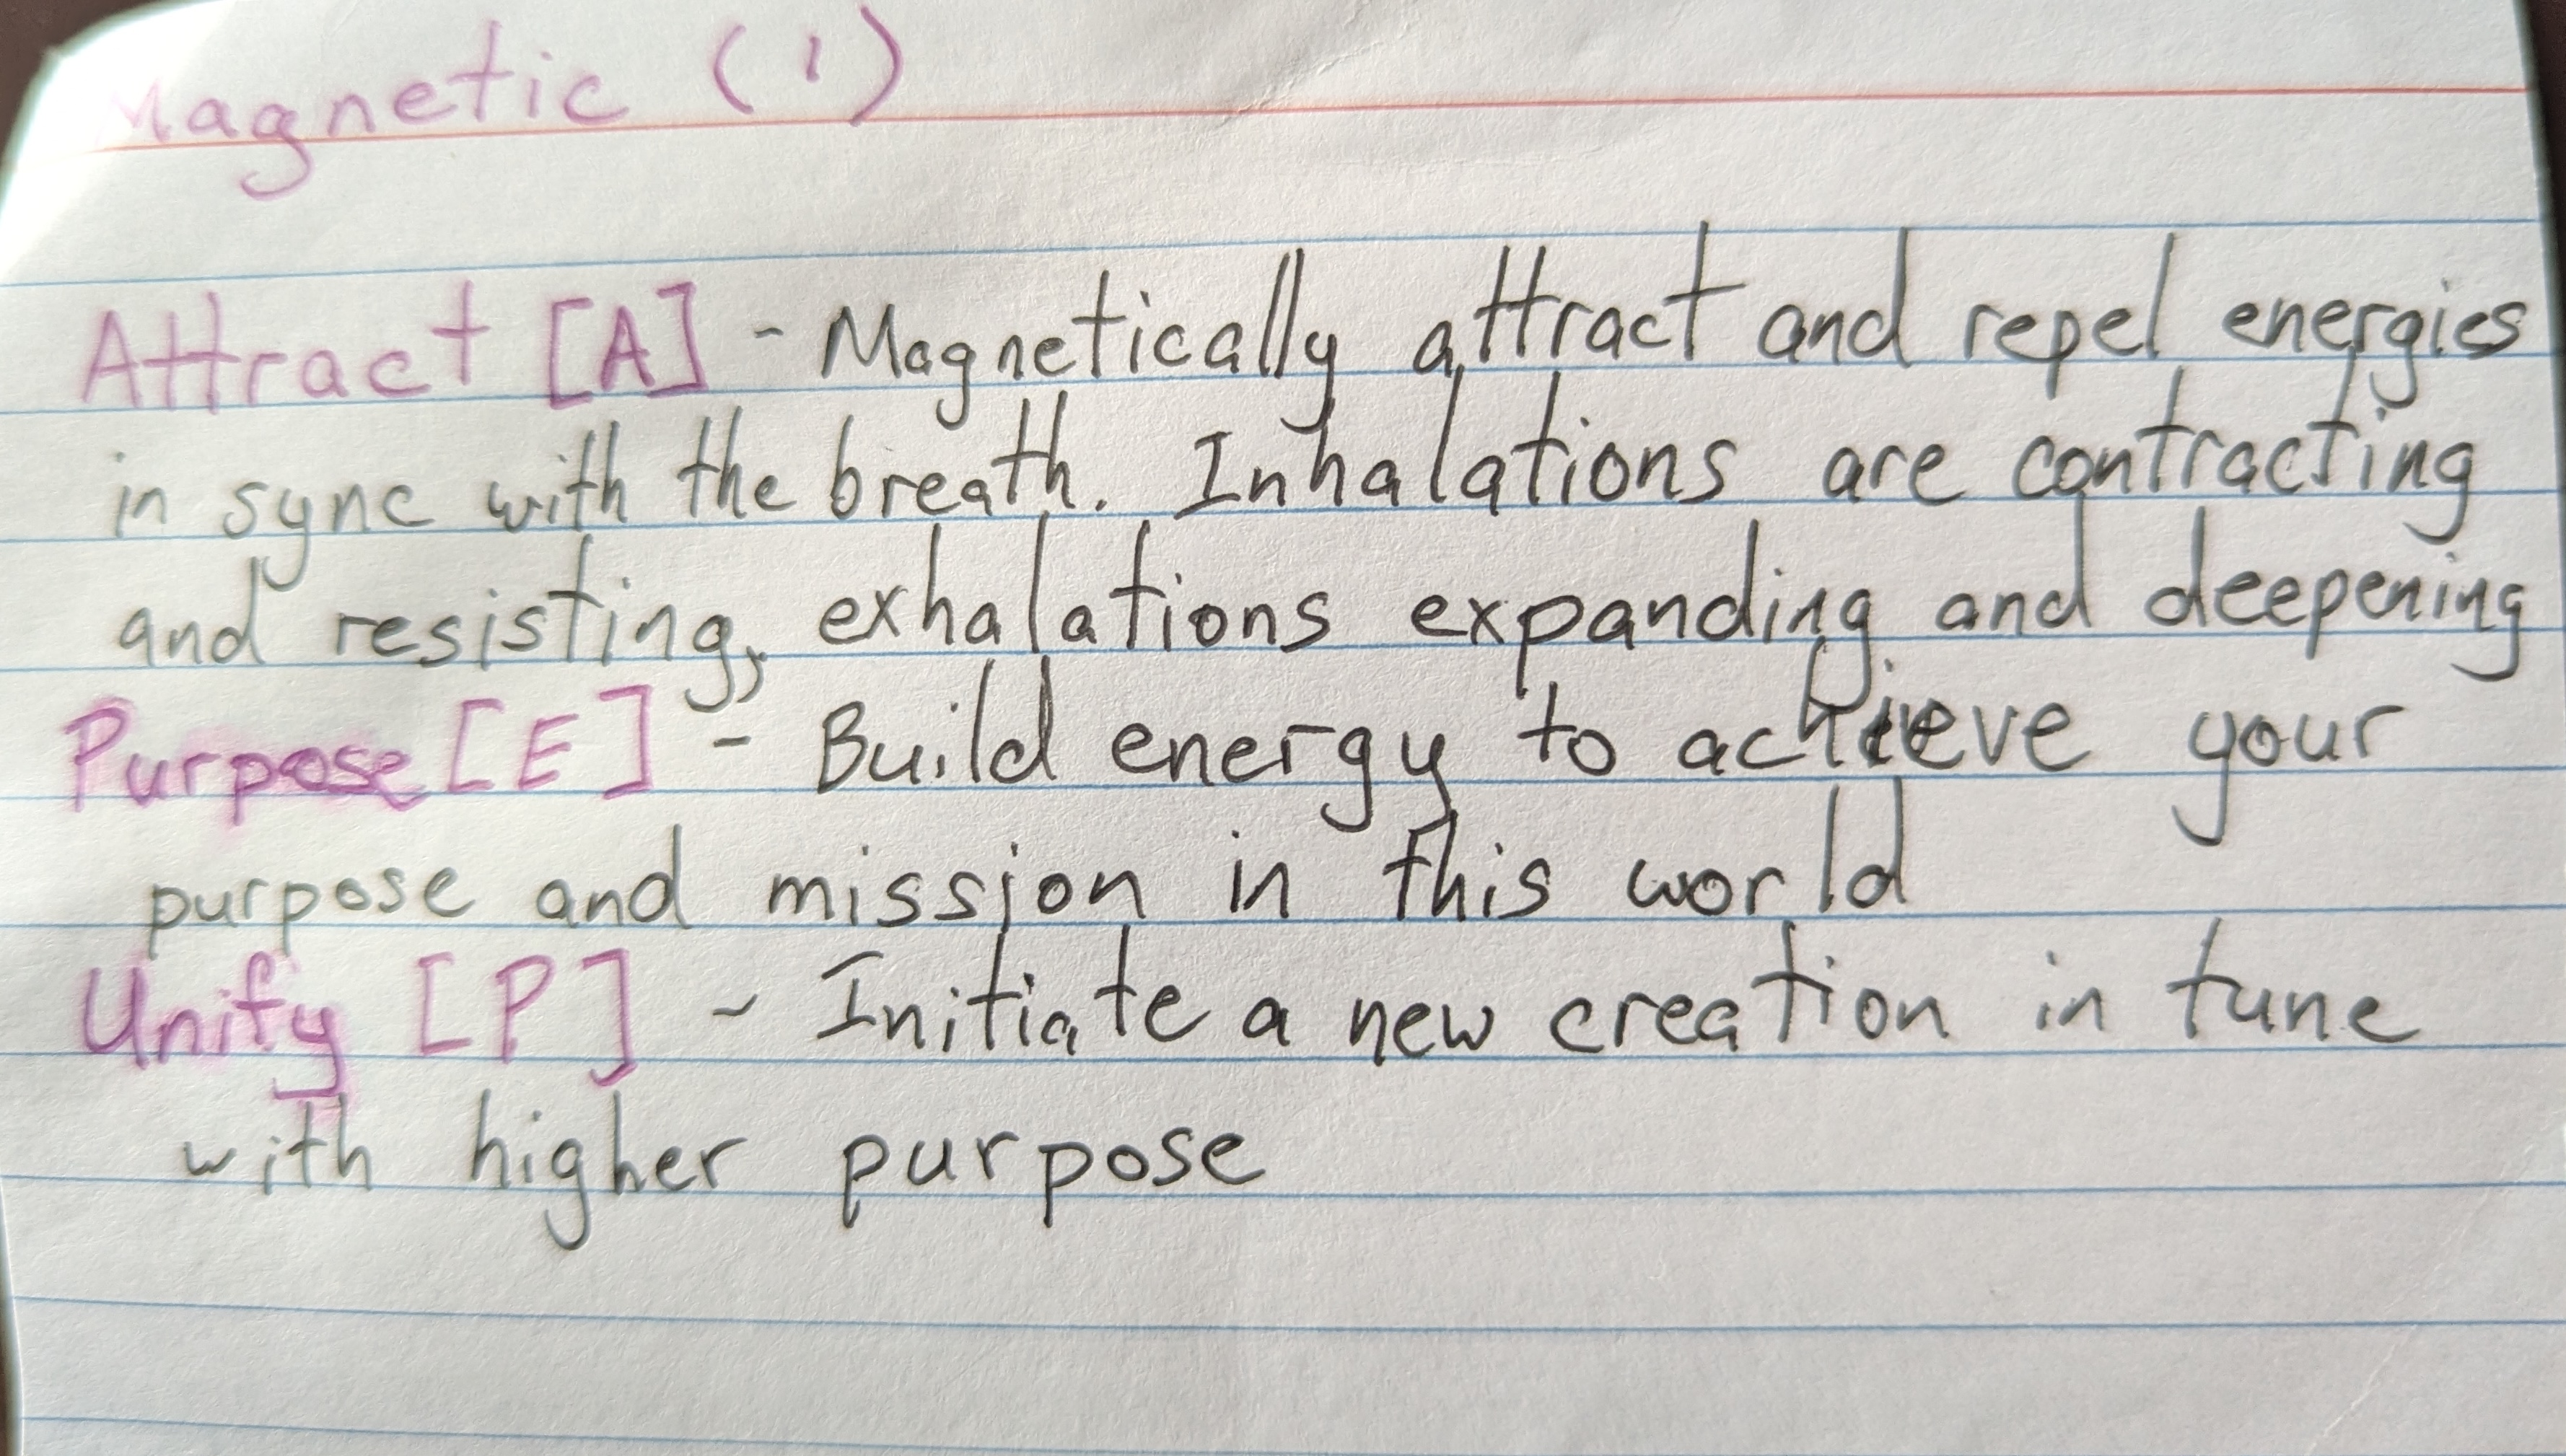 Magnetic (1)
Attract [A] - Magnetically attract and repel energies
in sync with the breath. Inhalations are contracting
and resisting, exhalations expanding and deepening
Purpose [E] - Build energy to achieve your
purpose and mission in this world
Unify [P] - Initiate a new creation in tune
with higher purpose